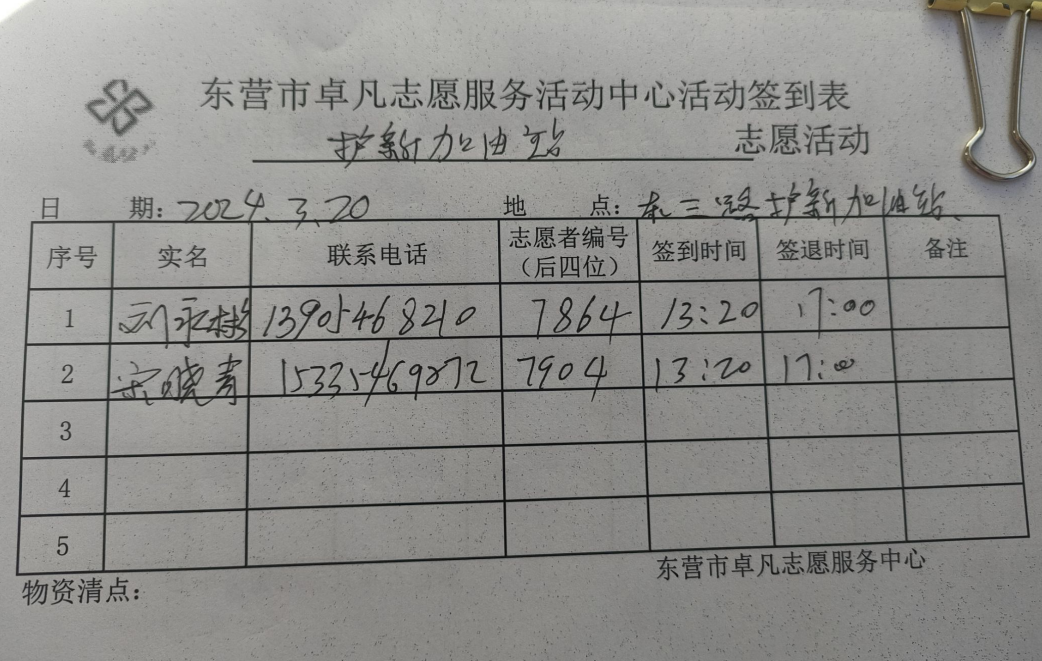 东营市卓凡志愿服务活动中心活动签到表
护新加油站 志愿活动
日 期: 2024.3.20 地 点: 东三路护新加油站
序号 实名 联系电话 志愿者编号（后四位） 签到时间 签退时间 备注
1 刘永彬 13905468210 7864 13:20 17:00
2 宋晓青 15335469272 7904 13:20 17:00
3
4
5
物资清点: 东营市卓凡志愿服务中心